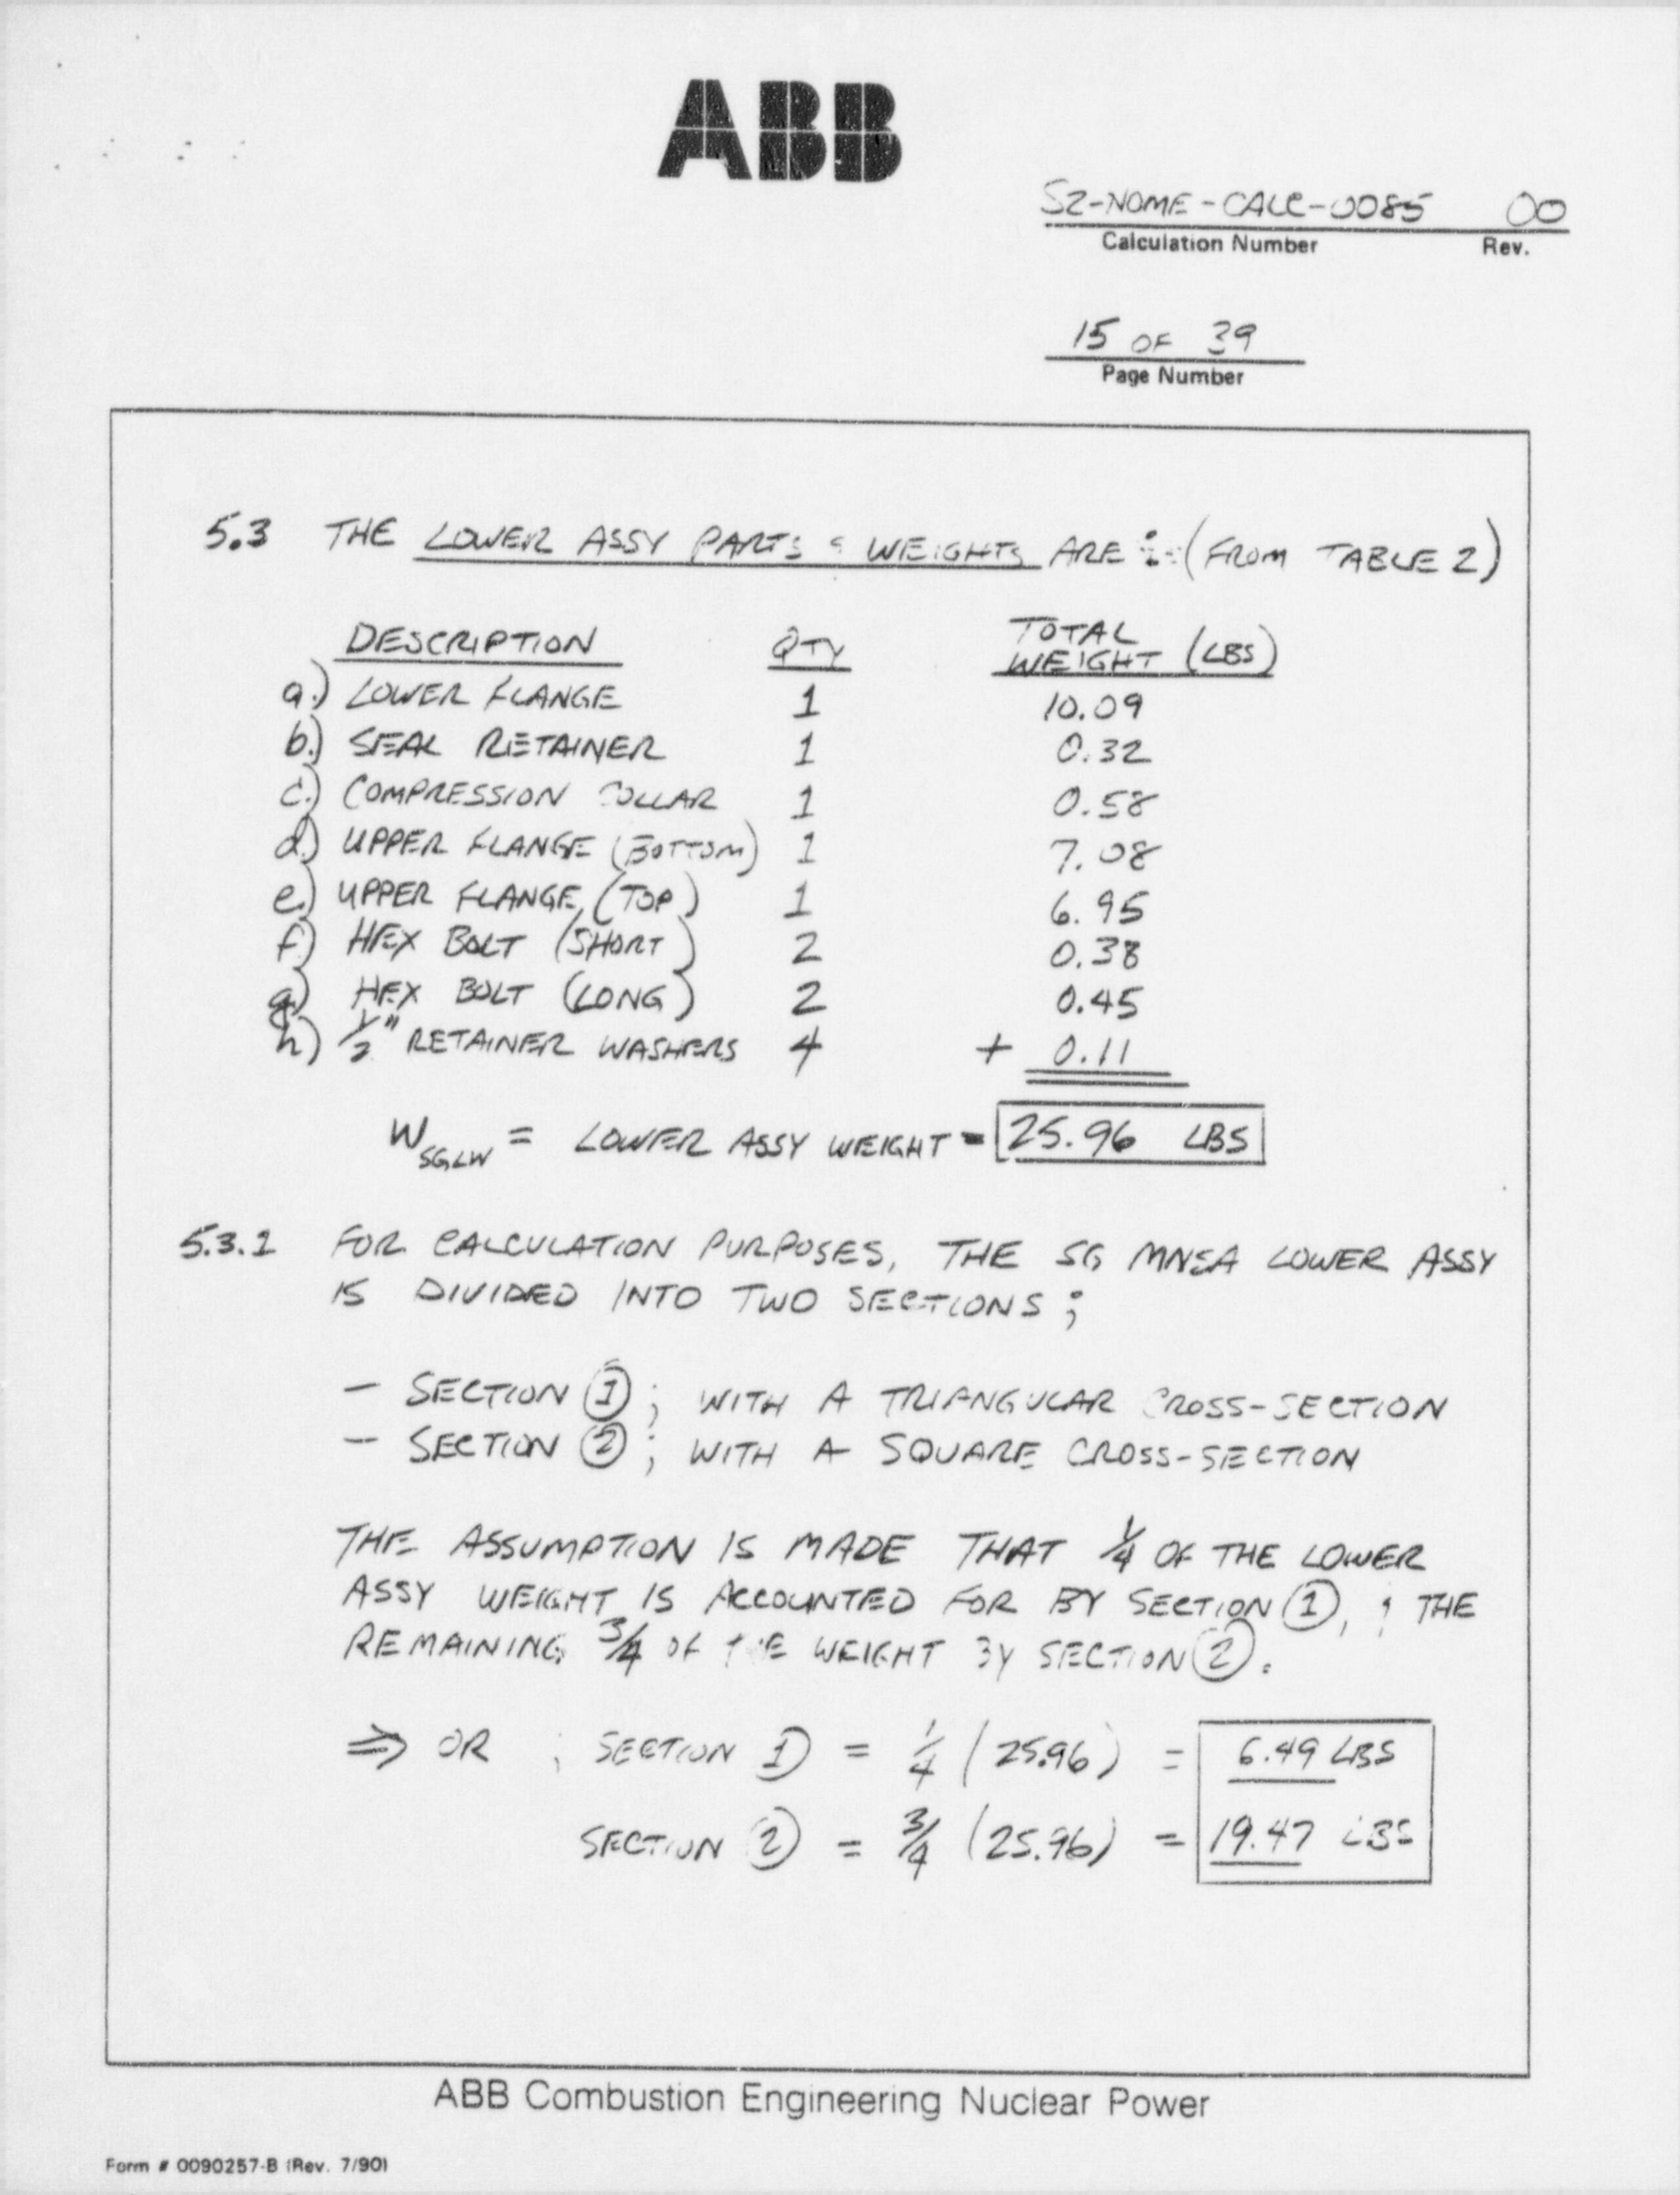 ABB
S2-NOME-CALC-0085 00
Calculation Number Rev.
15 OF 39
Page Number
5.3 THE LOWER ASSY PARTS & WEIGHTS ARE :-(FROM TABLE 2)
DESCRIPTION QTY TOTAL WEIGHT (LBS)
a.) LOWER FLANGE 1 10.09
b.) SEAL RETAINER 1 0.32
c.) COMPRESSION COLLAR 1 0.58
d.) UPPER FLANGE (BOTTOM) 1 7.08
e.) UPPER FLANGE, (TOP) 1 6.95
f) HEX BOLT (SHORT) 2 0.38
g) HEX BOLT (LONG) 2 0.45
h) 1/2" RETAINER WASHERS 4 + 0.11
W SGLW = LOWER ASSY WEIGHT = 25.96 LBS
5.3.1 FOR CALCULATION PURPOSES, THE SG MNSA LOWER ASSY
IS DIVIDED INTO TWO SECTIONS ;
- SECTION ① ; WITH A TRIANGULAR CROSS-SECTION
- SECTION ② ; WITH A SQUARE CROSS-SECTION
THE ASSUMPTION IS MADE THAT 1/4 OF THE LOWER
ASSY WEIGHT IS ACCOUNTED FOR BY SECTION ①, & THE
REMAINING 3/4 OF THE WEIGHT BY SECTION ②.
⇒ OR ; SECTION ① = 1/4 (25.96) = 6.49 LBS
SECTION ② = 3/4 (25.96) = 19.47 LBS
ABB Combustion Engineering Nuclear Power
Form # 0090257-B (Rev. 7/90)